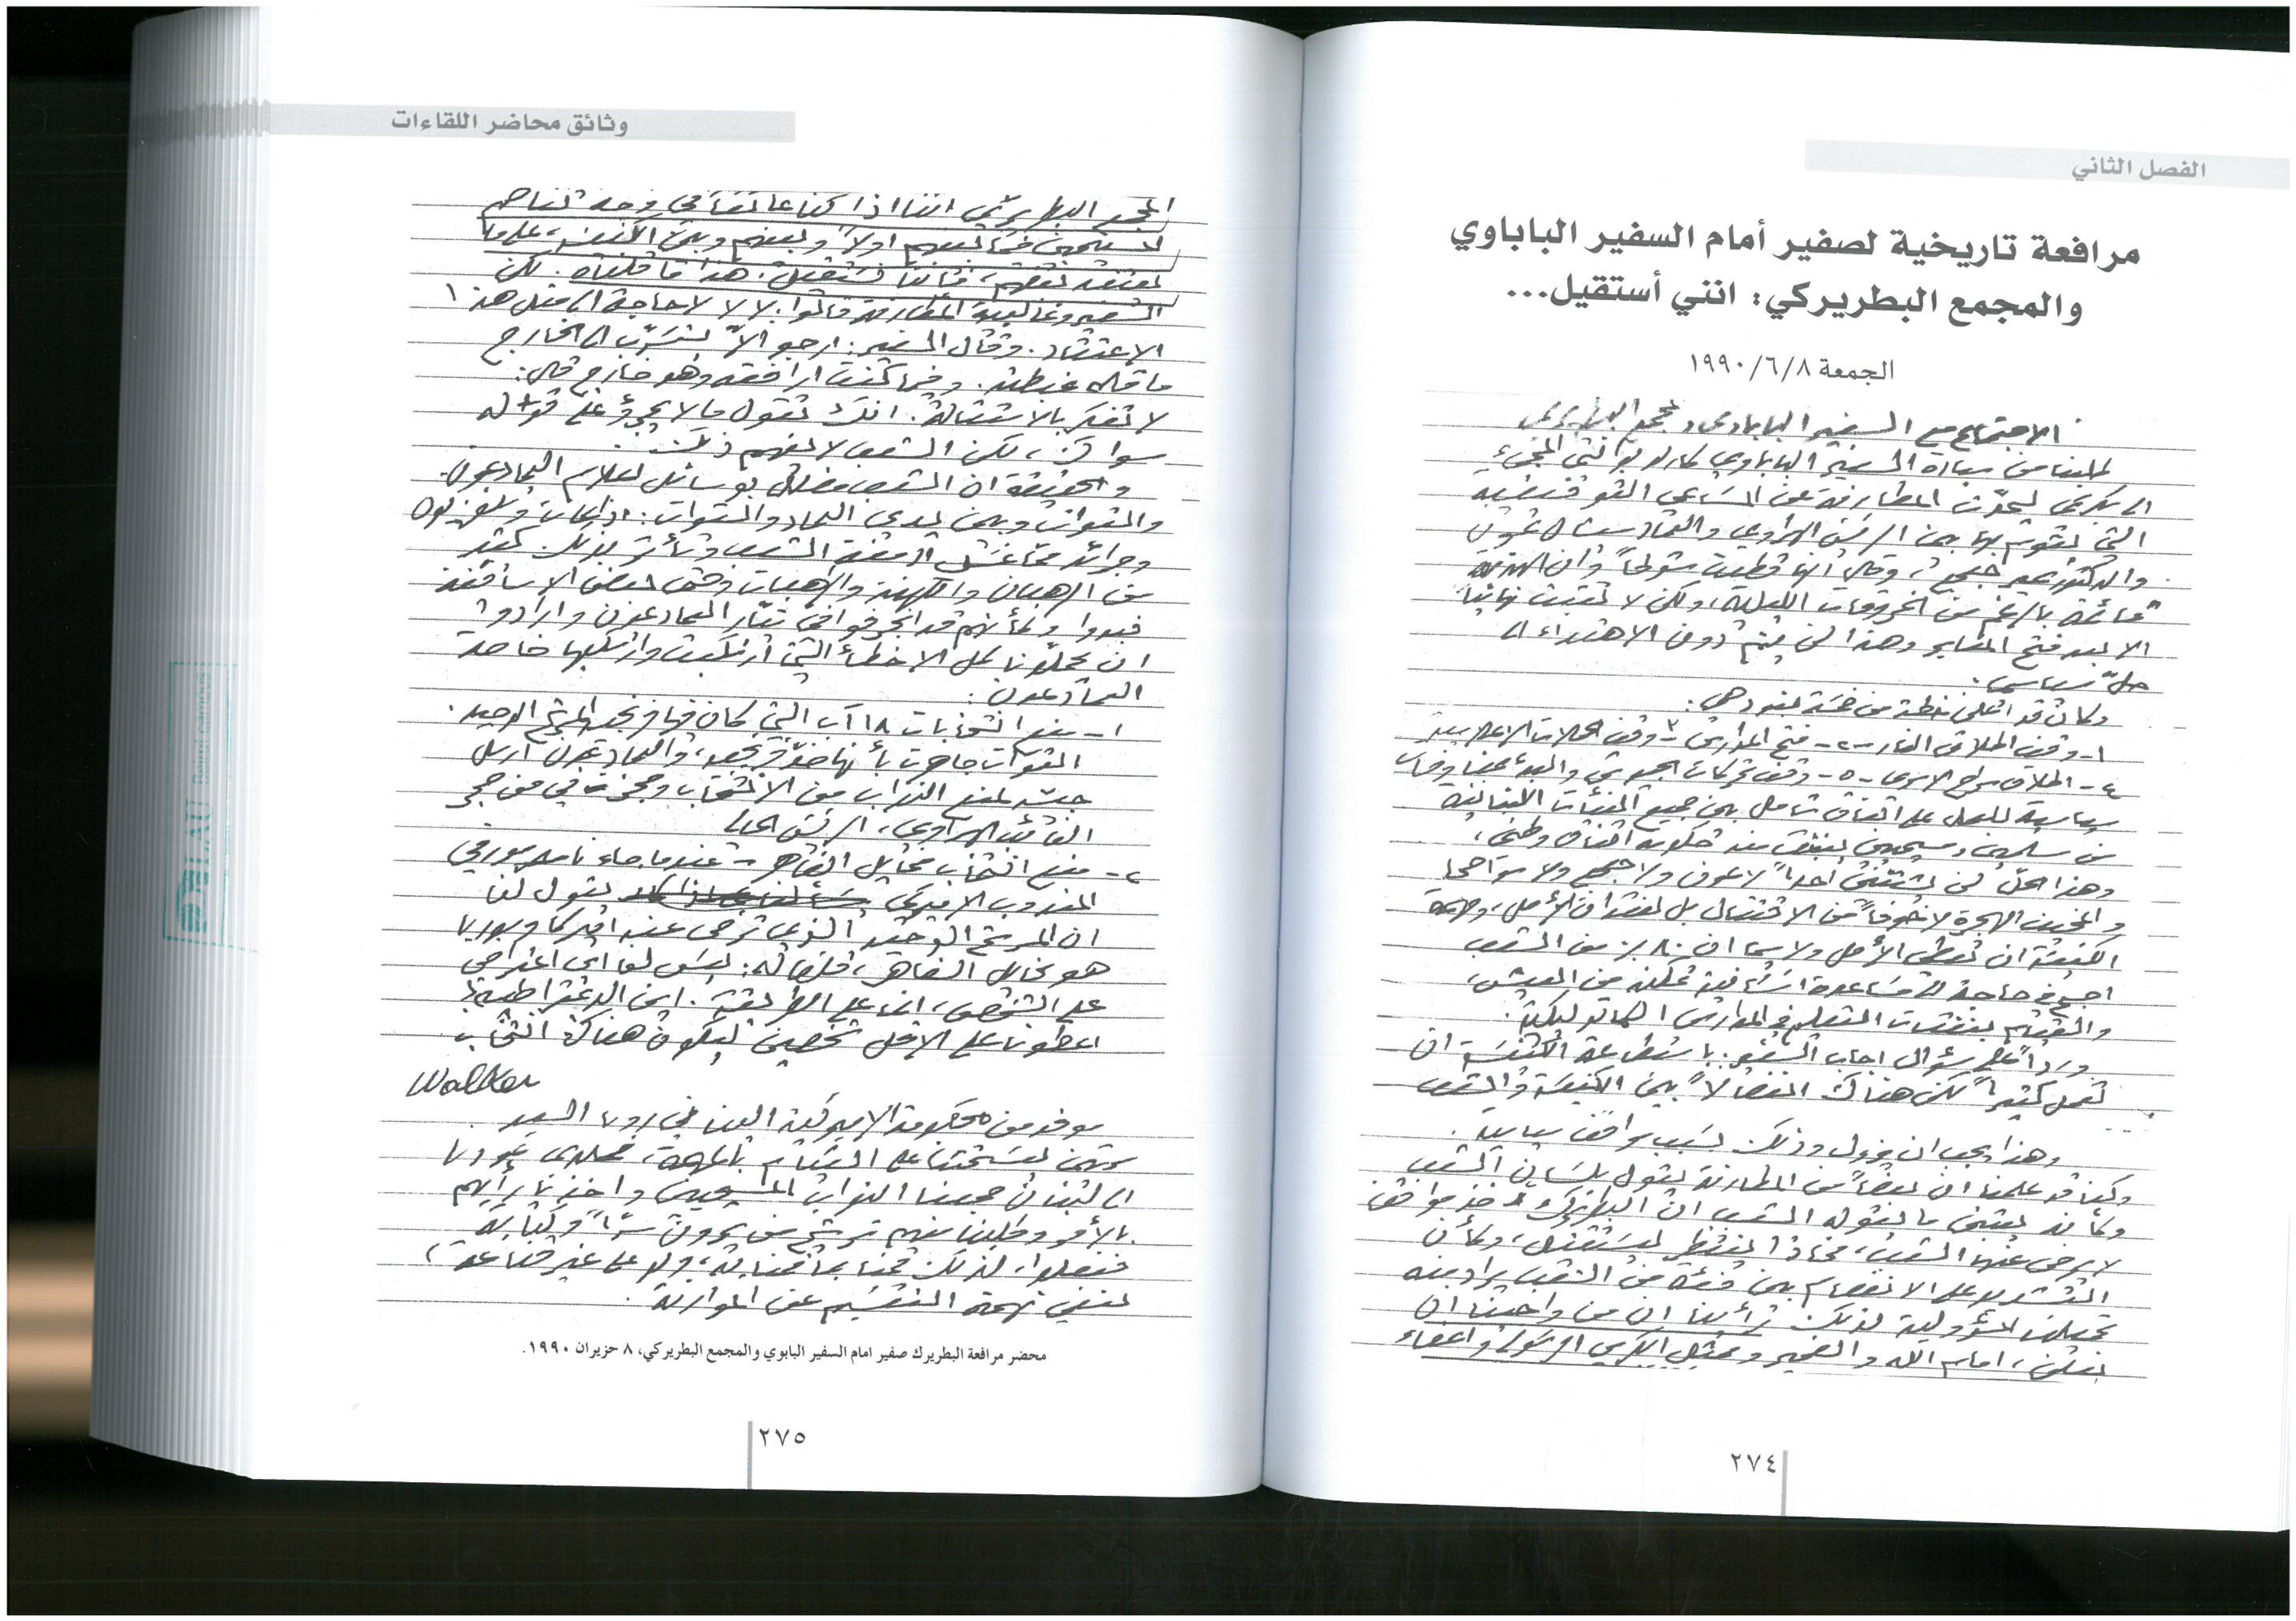 الفصل الثاني
مرافعة تاريخية لصفير أمام السفير الباباوي
والمجمع البطريركي: انني أستقيل...
الجمعة ١٩٩٠/٦/٨
الاجتماع مع السفير الباباوي ومجمع البطريركي
طلبنا من سيادة السفير الباباوي بابلو بوانتي المجيء
الى بكركي ليحدّث المطارنة عن المساعي التوفيقية
التي يقوم بها بين الرئيس الهراوي والعماد ميشال عون
والدكتور سمير جعجع، وقال انها قطعت شوطاً وان الهدنة
قائمة بالرغم من الخروقات الليلية، ولكن لا تثبت نهائياً
الا بعد فتح المعابر وهذا لن يتم دون الاهتداء الى
حلّ سياسي.
وكان قد اعلن خطة من خمسة بنود هي:
١- وقف اطلاق النار -٢- فتح المدارس ٣- وقف الحملات الاعلامية
٤- اطلاق سراح الاسرى -٥- وقف تحركات الجيوش والبدء
سياسية للعمل على اتفاق شامل بين جميع الفئات اللبنانية
من مسلمين ومسيحيين لينبثق منه حكومة اتفاق وطني،
وهذا الحلّ لن يستثني احداً لا عون ولا جعجع ولا سواهما
والمخيف الهجرة لا خوفاً من الاقتتال بل لفقدان الأمل، ومهمة
الكنيسة ان تعطي الأمل ولا سيما ان ٨٠٪ من الشعب
اصبح في حاجة الى مساعدة انسانية تمكنه من العيش،
والقيام بنفقات التعليم في المدارس الكاثوليكية.
ورداً على سؤال اجاب السفير: باستطاعة الكنيسة ان
تعمل كثيراً لكن هناك انفصالاً بين الكنيسة والشعب
وهذا يجب ان يزول وذلك بسبب مواقف سياسية.
وكنا قد علمنا ان بعضاً من المطارنة يقول بلسان الشعب
وكأنه يتبنى ما يقوله الشعب ان البطريرك اخذ مواقف
لا يرضى عنها الشعب، فماذا ينتظر ليستقيل، وكأن
التشديد على الانفصام بين فئة من الشعب يراد منه
تحميلنا المسؤولية لذلك رأينا ان من واجبنا ان
نعلن، امام الله والضمير وممثل الكرسي الرسولي واعضاء
٢٧٤
وثائق محاضر اللقاءات
المجمع البطريركي اننا اذا كنا عائقاً في وجه تفاهم
المسيحيين فيما بينهم اولاً وبينهم وبين الكنيسة، على ما
يعتقد بعضهم، فاننا نستقيل. هذا ما قلناه. لكن
السفير وغالبية المطارنة قالوا: لا لا لا حاجة الى مثل هذا
الاعتقاد. وقال السفير: ارجو الاّ يتسرّب الى الخارج
ما قاله غبطته. وفيما كنت ارافقه وهو خارج قال:
لا تفكر بالاستقالة. انك تقول ما لا يجرؤ على قوله
سواك، لكن الشعب لا يفهم ذلك.
والحقيقة ان الشعب مضلّل بوسائل اعلام العماد عون
والقوات وبين يدي العماد والقوات: اذاعات وتلفزيون
وجرائد مما غسل ادمغة الشعب وتأثر بذلك كثير
من الرهبان والكهنة والراهبات وحتى بعض الاساقفة
فبدوا وكأنهم قد انجرفوا في تيّار العماد عون وارادوا
ان يحمّلونا كل الاخطاء التي ارتكبت وارتكبها خاصة
العماد عون:
١- منع انتخابات ١٨ آب التي كان فيها فرنجيه المرشح الوحيد.
القوات جاهرت بأنها ضدّ فرنجيه، والعماد عون ارسل
جيشه لمنع النواب من الانتخاب وحجزت في من حجز
النائب الهراوي، الرئيس الحالي
٢- منع انتخاب مخايل الضاهر - عندما جاء ناصر مورفي
المندوب الاميركي يقول لنا
ان المرشح الوحيد الذي ترضى عنه اميركا وسوريا
هو مخايل الضاهر، قلنا له: ليس لنا اي اعتراض
على الشخص، انما على الطريقة. اين الديمقراطية؟
اعطونا على الاقل شخصين ليكون هناك انتخاب.
Walker
موفد من الحكومة الاميركية الينا في روما السيد
مرتين ليستحثنا على القيام بالمهمة، فلدى عودتنا
الى لبنان جمعنا النواب المسيحيين واخذنا برأيهم
بالأمر وطلبنا منهم ترشيح من يرون سرّاً وكتابة
ففعلوا، لذلك قمنا بما قمنا به، ولو على غير قناعة،
لننفي تهمة التقسيم عن الموارنة.
محضر مرافعة البطريرك صفير امام السفير البابوي والمجمع البطريركي، ٨ حزيران ١٩٩٠.
٢٧٥
LAU
Beirut campus